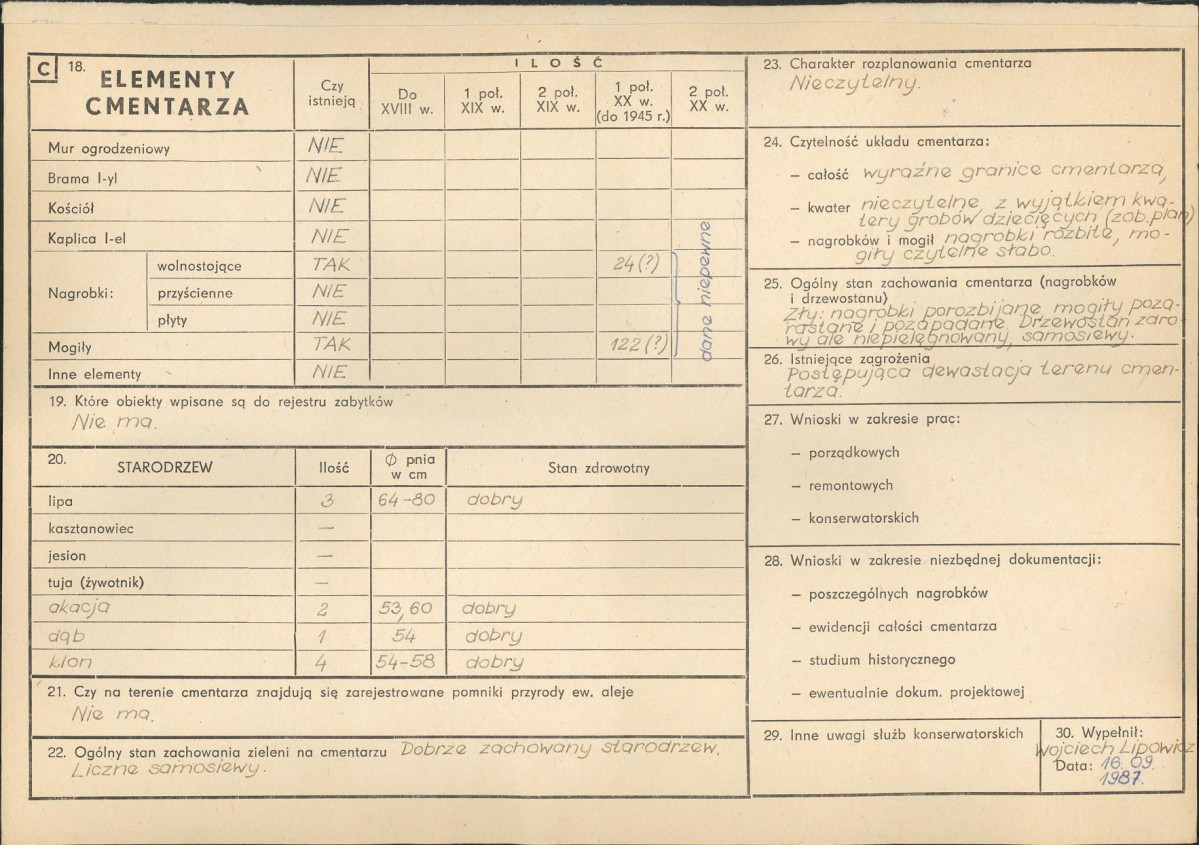 C 18. ELEMENTY CMENTARZA
Czy istnieją
ILOŚĆ
Do XVIII w.
1 poł. XIX w.
2 poł. XIX w.
1 poł. XX w. (do 1945 r.)
2 poł. XX w.
Mur ogrodzeniowy NIE
Brama I-yl NIE
Kościół NIE
Kaplica I-el NIE
Nagrobki:
wolnostojące TAK 24(?)
przyścienne NIE
płyty NIE
Mogiły TAK 122(?)
dane niepewne
Inne elementy NIE
19. Które obiekty wpisane są do rejestru zabytków
Nie ma.
20. STARODRZEW Ilość Ø pnia w cm Stan zdrowotny
lipa 3 64-80 dobry
kasztanowiec —
jesion —
tuja (żywotnik) —
akacja 2 53,60 dobry
dąb 1 54 dobry
klon 4 54-58 dobry
21. Czy na terenie cmentarza znajdują się zarejestrowane pomniki przyrody ew. aleje
Nie ma.
22. Ogólny stan zachowania zieleni na cmentarzu Dobrze zachowany starodrzew.
Liczne samosiewy.
23. Charakter rozplanowania cmentarza
Nieczytelny.
24. Czytelność układu cmentarza:
— całość wyraźne granice cmentarza,
— kwater nieczytelne, z wyjątkiem kwa-
tery grobów dziecięcych (zob. plan)
— nagrobków i mogił nagrobki rozbite, mo-
giły czytelne słabo.
25. Ogólny stan zachowania cmentarza (nagrobków
i drzewostanu)
Zły: nagrobki porozbijane, mogiły poza-
rastane i pozapadane. Drzewostan zdro-
wy ale niepielęgnowany, samosiewy.
26. Istniejące zagrożenia
Postępująca dewastacja terenu cmen-
tarza.
27. Wnioski w zakresie prac:
— porządkowych
— remontowych
— konserwatorskich
28. Wnioski w zakresie niezbędnej dokumentacji:
— poszczególnych nagrobków
— ewidencji całości cmentarza
— studium historycznego
— ewentualnie dokum. projektowej
29. Inne uwagi służb konserwatorskich
30. Wypełnił:
Wojciech Lipowicz
Data: 16.09.
1987.